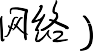 网络)